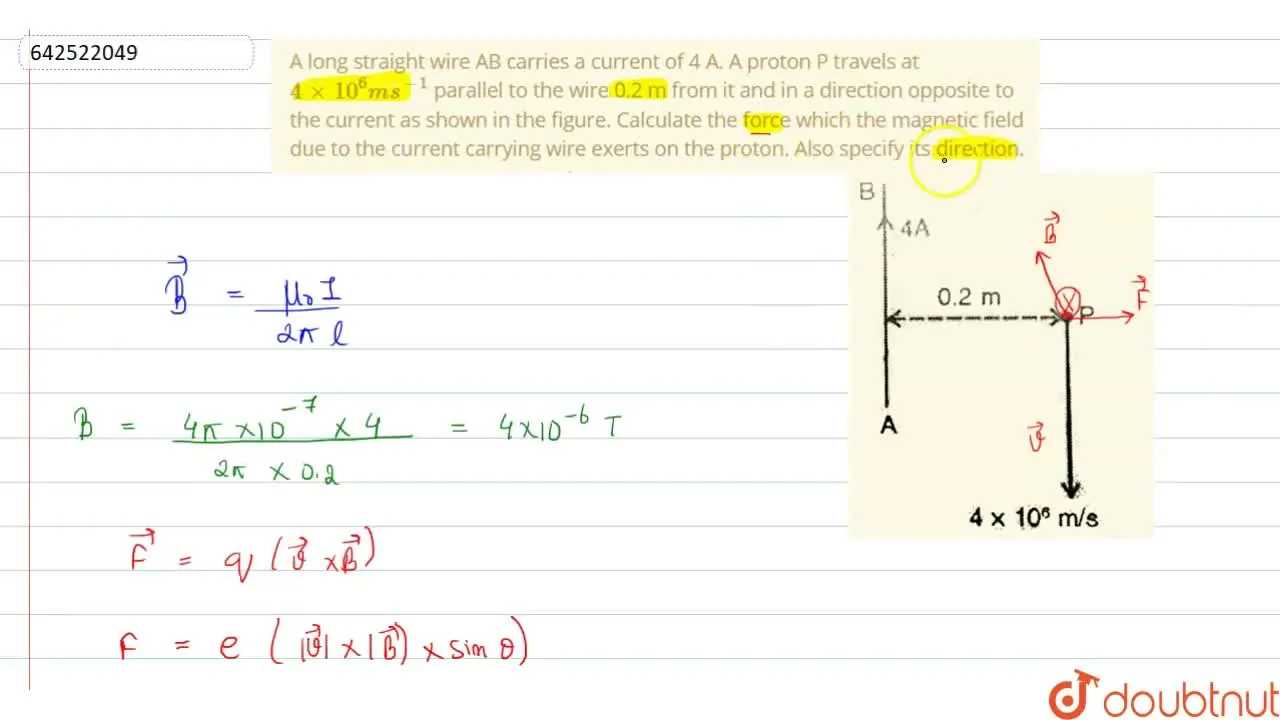 642522049
A long straight wire AB carries a current of 4 A. A proton P travels at
4 × 10⁶ms⁻¹ parallel to the wire 0.2 m from it and in a direction opposite to
the current as shown in the figure. Calculate the force which the magnetic field
due to the current carrying wire exerts on the proton. Also specify its direction.
B
4A
B⃗
0.2 m
F⃗
X
P
A
v⃗
4 × 10⁶ m/s
B⃗ = μ₀I / 2π l
B = 4π×10⁻⁷ × 4 / 2π × 0.2 = 4×10⁻⁶ T
F⃗ = q (v⃗ × B⃗)
F = e (|v⃗| × |B⃗) × sin θ)
doubtnut